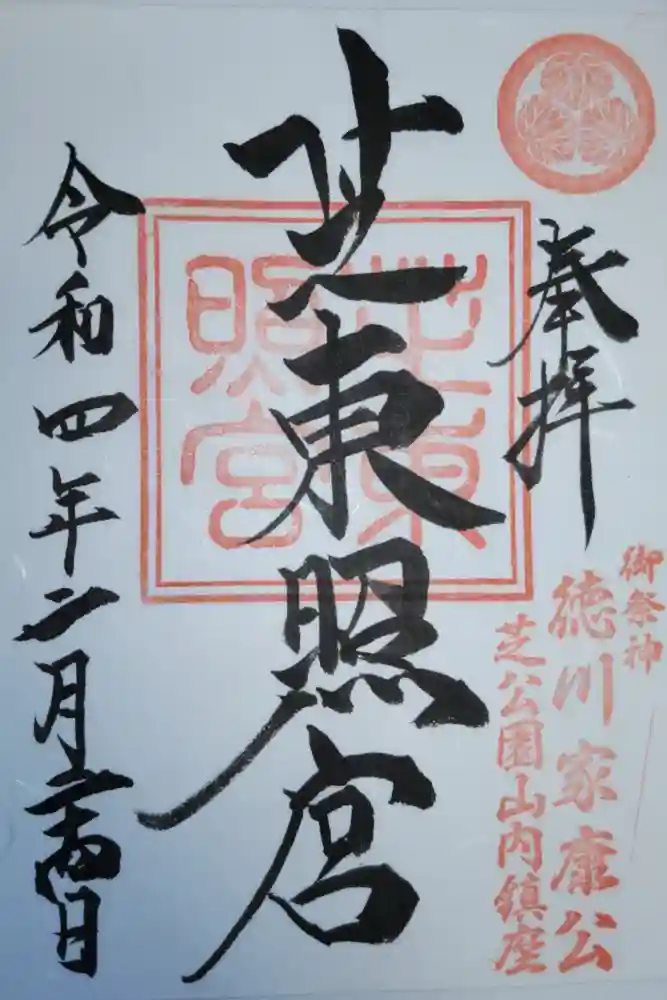 奉拝
御祭神
徳川家康公
芝公園山内鎮座
芝東照宮
芝東
照宮
令和四年二月二十四日